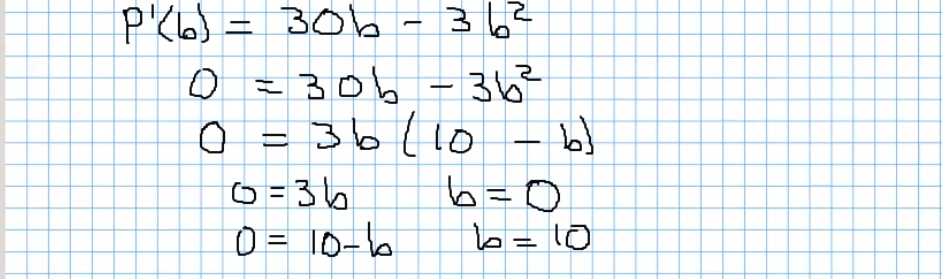 P'(b) = 30b - 3b²
0 = 30b - 3b²
0 = 3b(10 - b)
0 = 3b b = 0
0 = 10-b b = 10